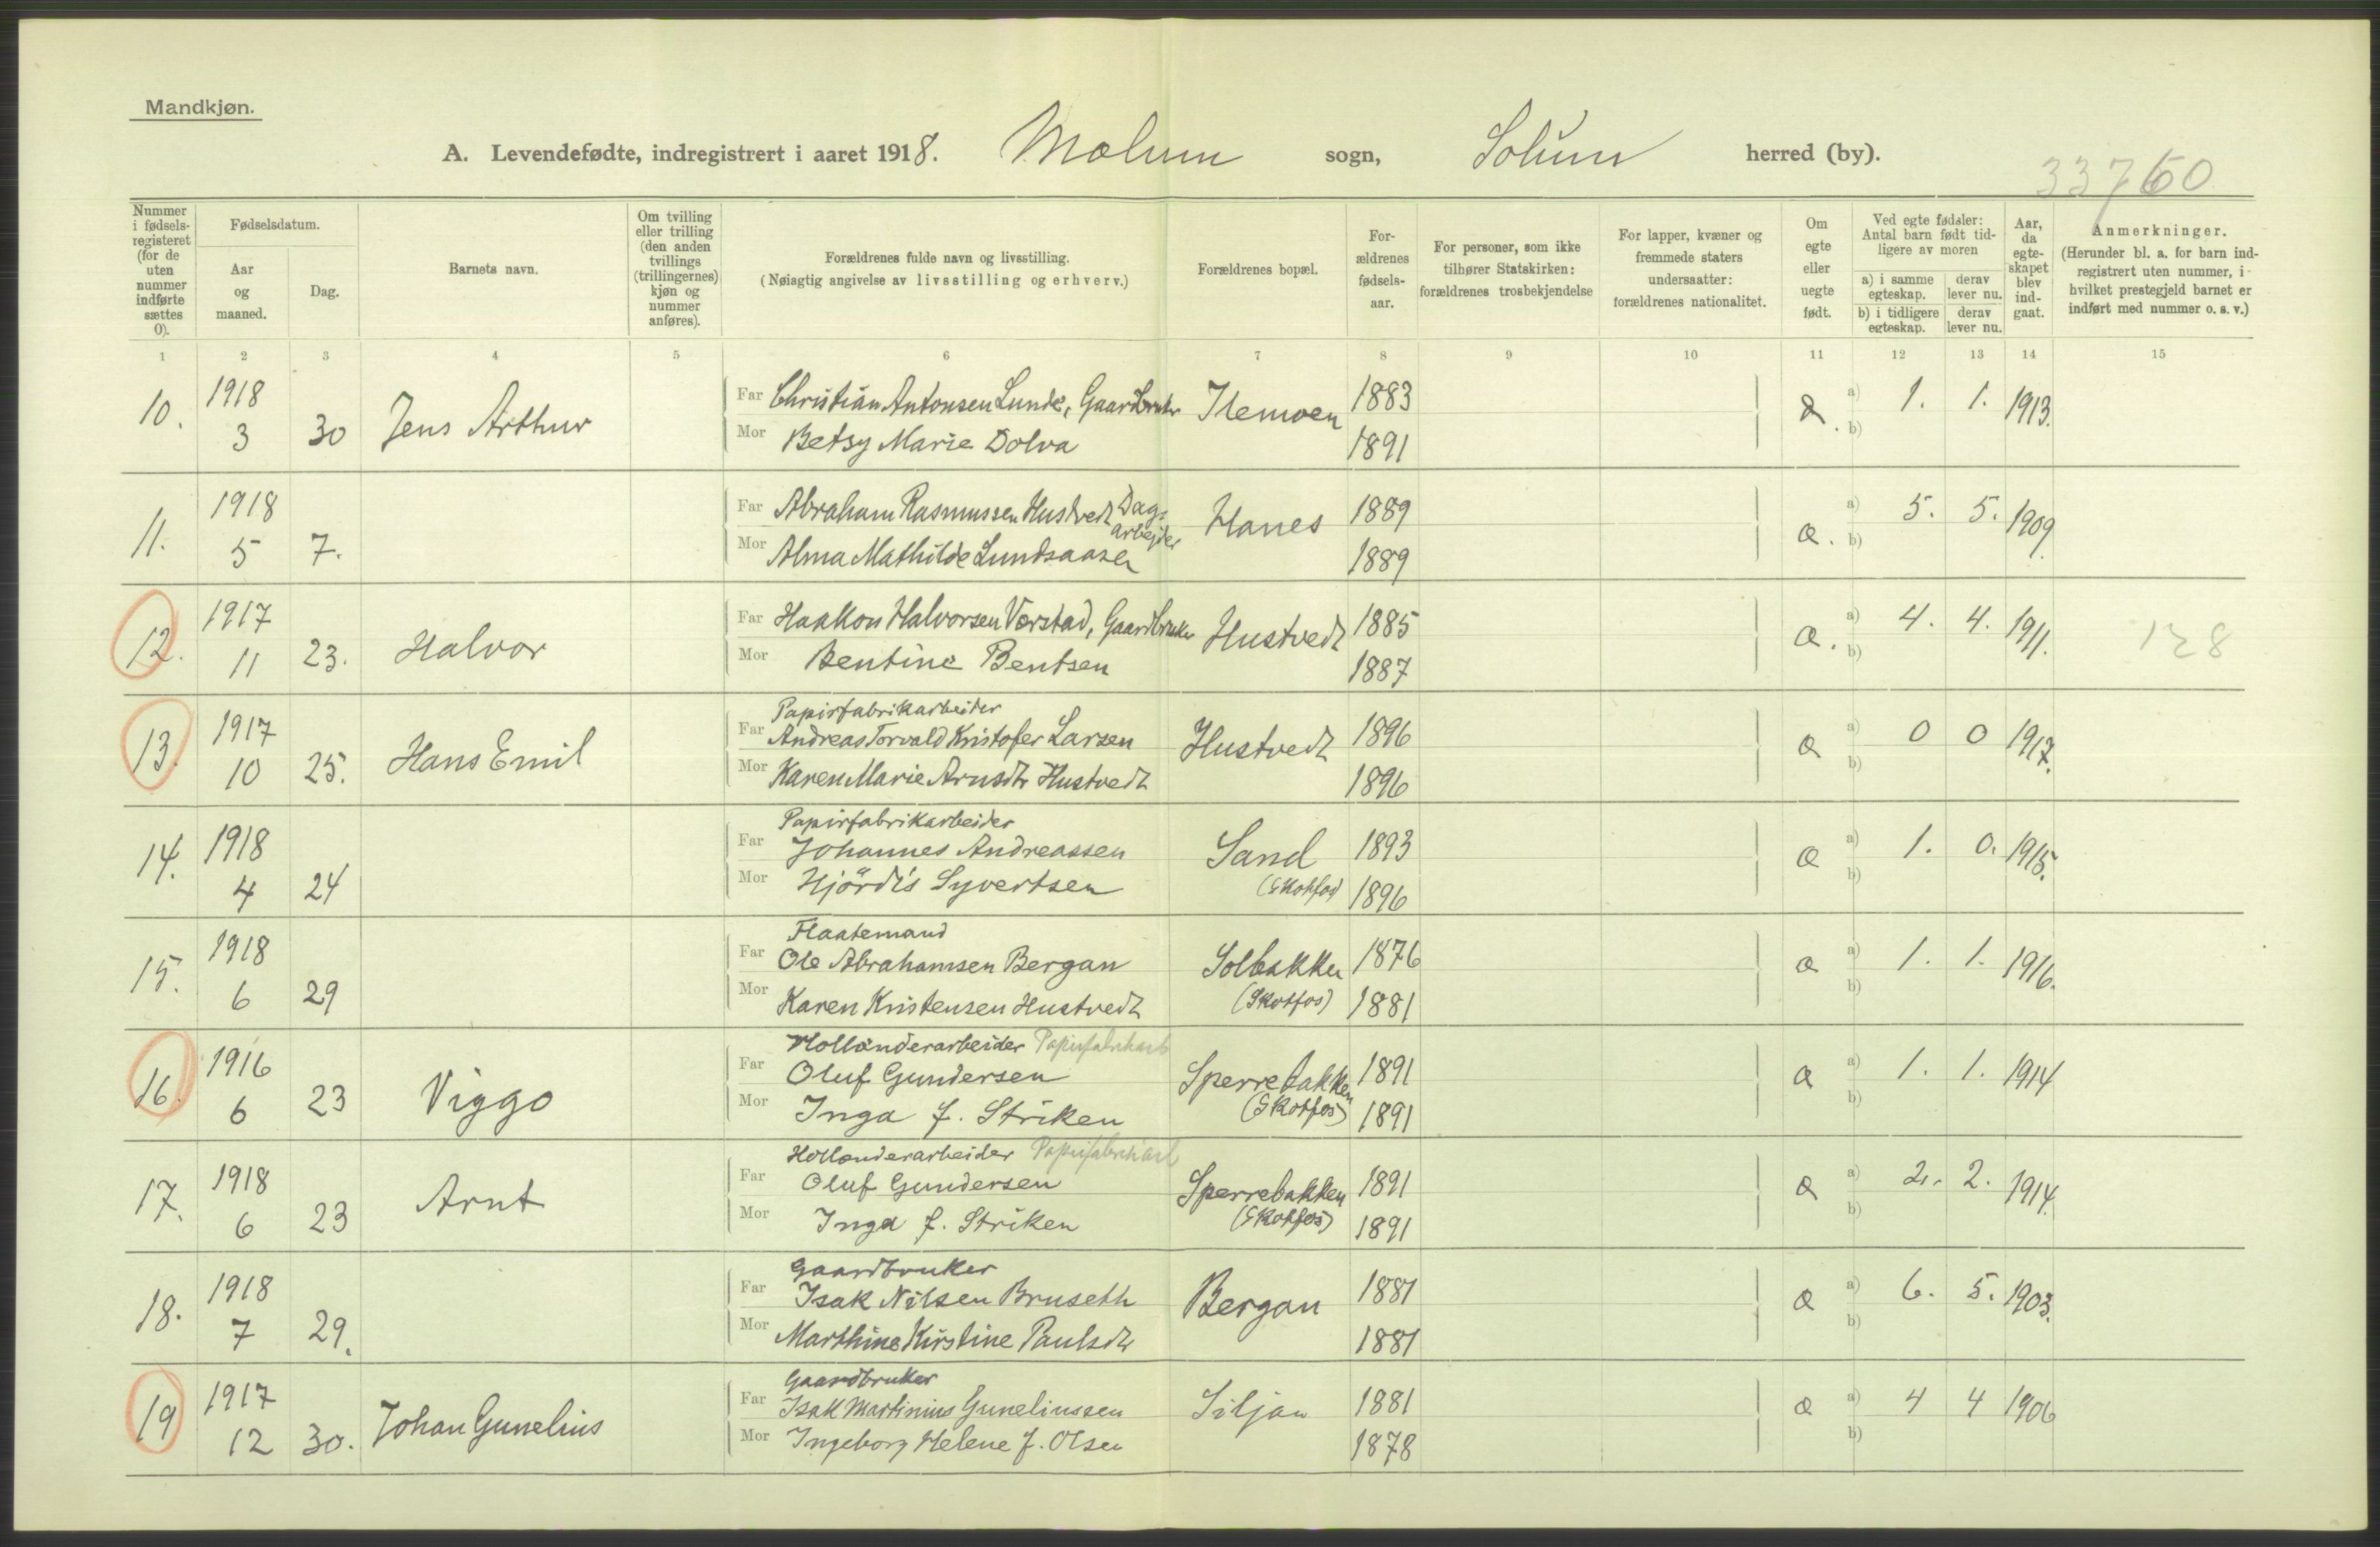 Mandkjøn.
A. Levendefødte, indregistrert i aaret 1918. Mælum sogn, Solum herred (by).
33760
Nummer i fødselsregisteret (for de uten nummer indførte sættes 0).
Fødselsdatum.
Aar og maaned.
Dag.
Barnets navn.
Om tvilling eller trilling (den anden tvillings (trillingernes) kjøn og nummer anføres).
Forældrenes fulde navn og livsstilling.
(Nøiagtig angivelse av livsstilling og erhverv.)
Forældrenes bopæl.
Forældrenes fødselsaar.
For personer, som ikke tilhører Statskirken: forældrenes trosbekjendelse
For lapper, kvæner og fremmede staters undersaatter: forældrenes nationalitet.
Om egte eller uegte født.
Ved egte fødsler: Antal barn født tidligere av moren
a) i samme egteskap. derav lever nu.
b) i tidligere egteskap. derav lever nu.
Aar, da egteskapet blev indgaat.
Anmerkninger.
(Herunder bl. a. for barn indregistrert uten nummer, i hvilket prestegjeld barnet er indført med nummer o. s. v.)
1 2 3 4 5 6 7 8 9 10 11 12 13 14 15
10. 1918 3 30 Jens Arthur
Far Christian Antonsen Lunde, Gaardbruker
Mor Betsy Marie Dolva
Klemoen 1883 1891 a) 1. 1. 1913. b)
11. 1918 5 7.
Far Abraham Rasmussen Hustvedt Dagarbejder
Mor Alma Mathilde Lundsaasen
Hanes 1889 1889 a) 5. 5. 1909. b)
12. 1917 11 23. Halvor
Far Haakon Halvorsen Værstad, Gaardbruker
Mor Bentine Bentsen
Hustvedt 1885 1887 a) 4. 4. 1911. b) 128
13. 1917 10 25. Hans Emil
Papirfabrikarbeider
Far Andreas Torvald Kristofer Larsen
Mor Karen Marie Arnsdtr Hustvedt
Hustvedt 1896 1896 a) 0 0 1917. b)
14. 1918 4 24
Papirfabrikarbeider
Far Johannes Andreassen
Mor Hjördis Syvertsen
Sand (Skotfos) 1893 1896 a) 1. 0. 1915. b)
15. 1918 6 29
Flaatemand
Far Ole Abrahamsen Bergan
Mor Karen Kristensen Hustvedt
Solbakken (Skotfos) 1876 1881 a) 1. 1. 1916. b)
16. 1916 6 23 Viggo
Hollænderarbeider Papirfabrikarb
Far Oluf Gundersen
Mor Inga f. Striken
Sperrebakken (Skotfos) 1891 1891 a) 1. 1. 1914 b)
17. 1918 6 23 Arnt
Hollænderarbeider Papirfabrikarb
Far Oluf Gundersen
Mor Inga f. Striken
Sperrebakken (Skotfos) 1891 1891 a) 2. 2. 1914. b)
18. 1918 7 29.
Gaardbruker
Far Isak Nilsen Bruseth
Mor Marthine Kirstine Paulsdtr
Bergan 1881 1881 a) 6. 5. 1903. b)
19 1917 12 30. Johan Gunelius
Gaardbruker
Far Isak Martinius Guneliussen
Mor Ingeborg Helene f. Olsen
Siljan 1881 1878 a) 4 4 1906 b)